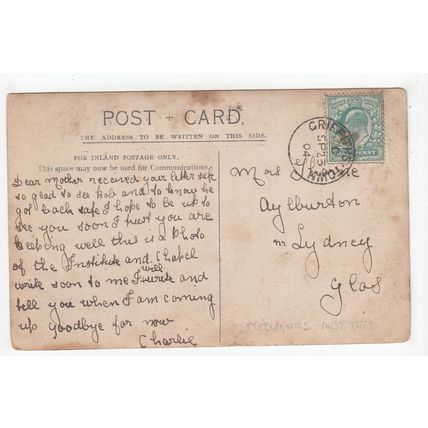 POST + CARD.
THE ADDRESS TO BE WRITTEN ON THIS SIDE.
FOR INLAND POSTAGE ONLY,
This space may now be used for Communications.
Dear Mother received your letter safe
so glad to see Bob and to know he
got back safe I hope to be up to
see you soon I trust you are
keeping well this is a Photo
of the Institute and Chapel
write soon to me I will write and
tell you when I am coming
up goodbye for now
Charlie
Mrs
Aylburton
nr Lydney
Glos
SP 23
04
INSTITUTE